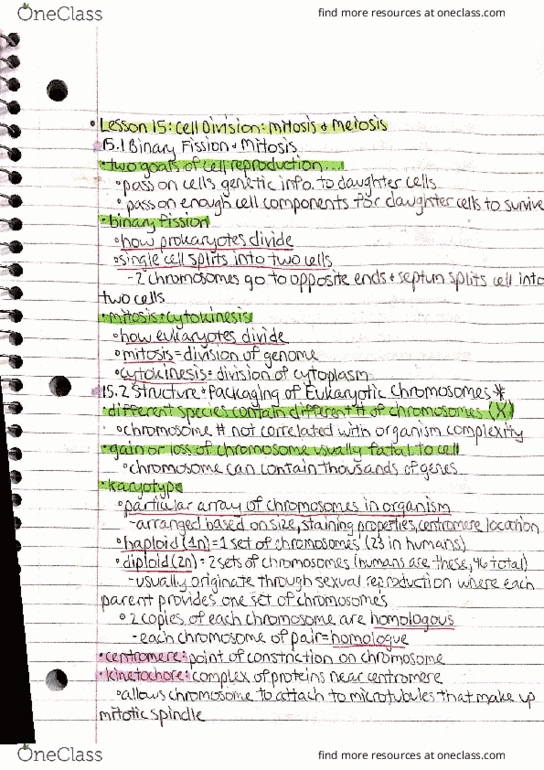 OneClass
find more resources at oneclass.com
• Lesson 15: Cell Division: Mitosis + Meiosis
15.1 Binary Fission + Mitosis
• two goals of cell reproduction...!
° pass on cell's genetic info. to daughter cells
° pass on enough cell components for daughter cells to survive
• binary fission
° how prokaryotes divide
° single cell splits into two cells
- 2 chromosomes go to opposite ends + septum splits cell into
two cells
• mitosis + cytokinesis
° how eukaryotes divide
° mitosis = division of genome
° cytokinesis = division of cytoplasm
15.2 Structure + Packaging of Eukaryotic Chromosomes *
• different species contain different # of chromosomes (X)
° chromosome # not correlated with organism complexity
• gain or loss of chromosome usually fatal to cell
° chromosome can contain thousands of genes
• karyotype
° particular array of chromosomes in organism
- arranged based on size, staining properties, centromere location
° haploid (1n) = 1 set of chromosomes (23 in humans)
° diploid (2n) = 2 sets of chromosomes (humans are these, 46 total)
- usually originate through sexual reproduction where each
parent provides one set of chromosomes
° 2 copies of each chromosome are homologous
- each chromosome of pair = homologue
• centromere: point of constriction on chromosome
• kinetochore: complex of proteins near centromere
° allows chromosome to attach to microtubules that make up
mitotic spindle
OneClass
find more resources at oneclass.com